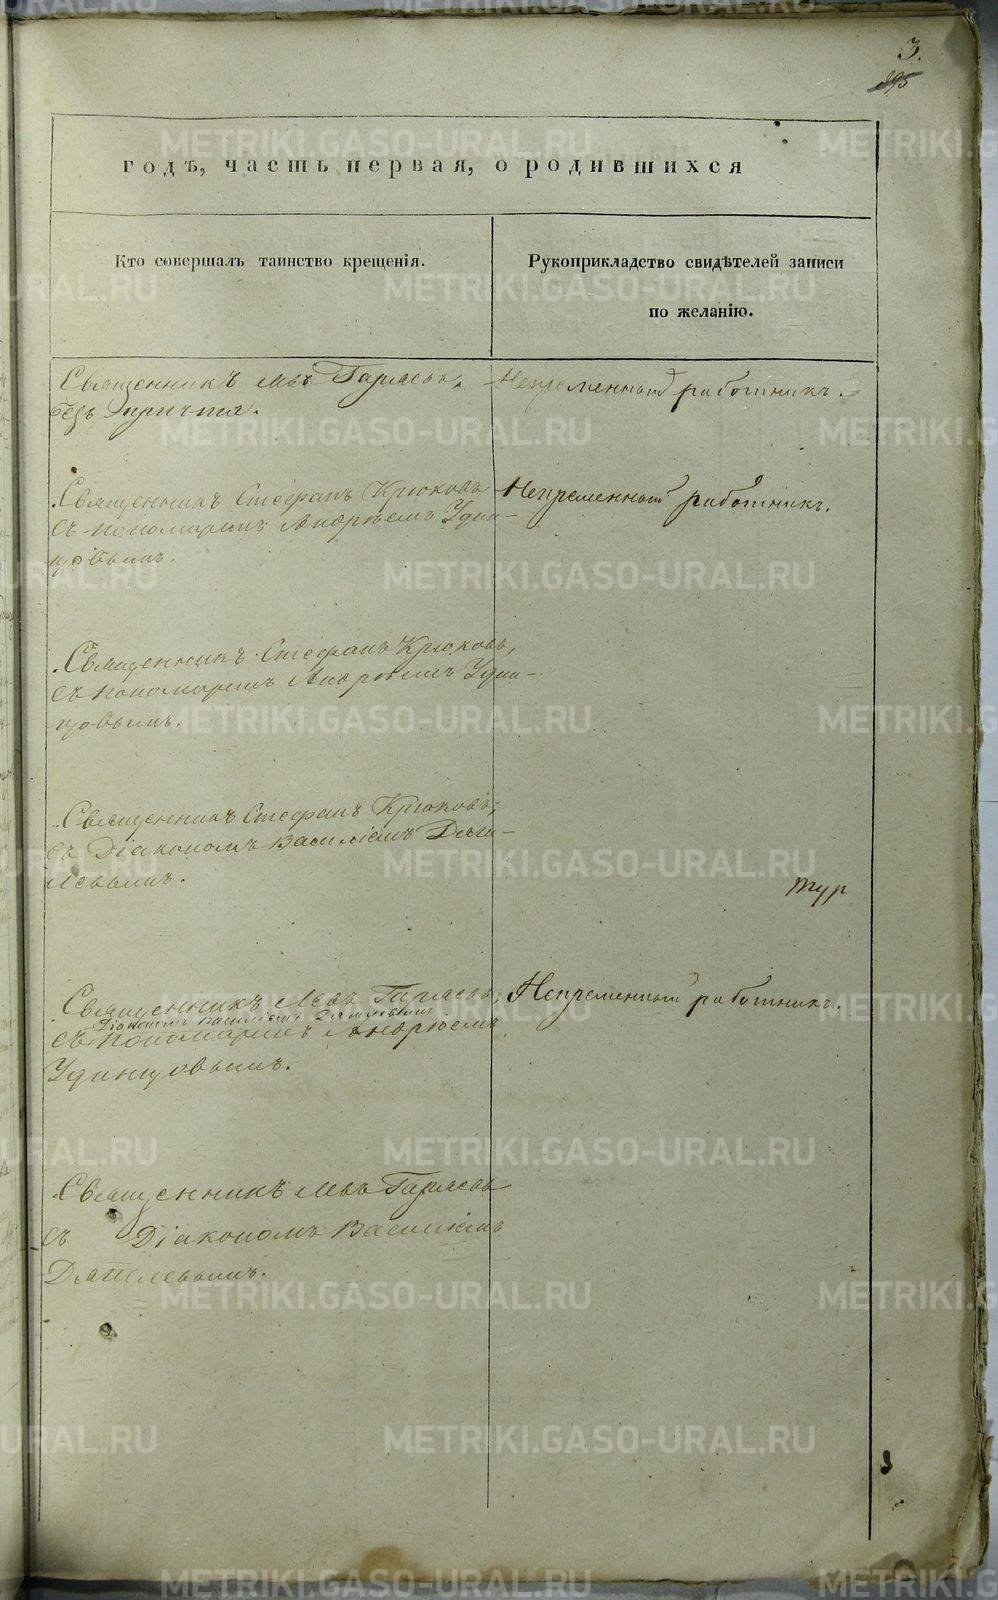 3.
895
годъ, часть первая, о родившихся
Кто совершалъ таинство крещенія.
Рукоприкладство свидѣтелей записи
по желанію.
Священникъ Левъ Гаряевъ.
безъ причта.
Непременный работникъ.
Священникъ Стефанъ Крюковъ
съ пономаремъ Андреемъ Удин-
цовымъ.
Непременный работникъ.
Священникъ Стефанъ Крюковъ,
съ пономаремъ Андреемъ Удин-
цовымъ.
Священникъ Стефанъ Крюковъ,
съ Діакономъ Василіемъ
тур
Священникъ Левъ Гаряевъ,
Діакономъ Василіемъ
съ пономаремъ Андреемъ
Удинцовымъ.
Непременный работникъ.
Священникъ Левъ Гаряевъ
съ Діакономъ Василіемъ
Дятлевымъ.
METRIKI.GASO-URAL.RU